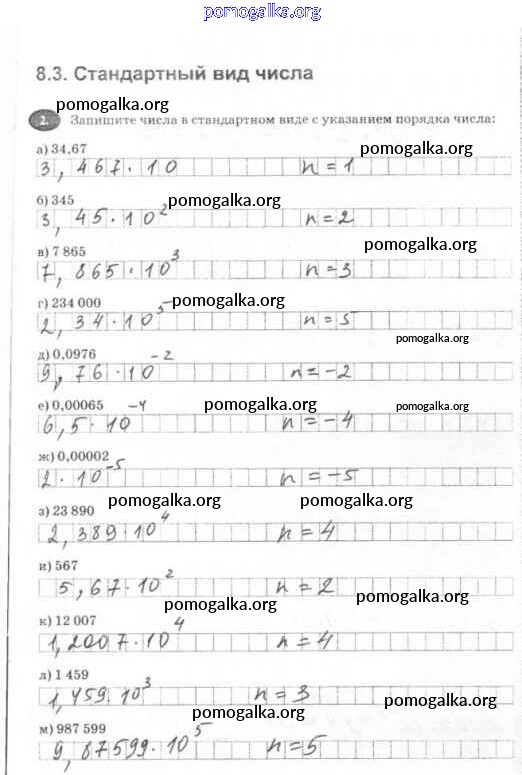 pomogalka.org
8.3. Стандартный вид числа
pomogalka.org
2. Запишите числа в стандартном виде с указанием порядка числа:
а) 34,67 pomogalka.org
3,467·10 n=1
pomogalka.org
б) 345
3,45·10² n=2
pomogalka.org pomogalka.org
в) 7 865
7,865·10³ n=3
г) 234 000 pomogalka.org
2,34·10⁵ n=5
pomogalka.org
д) 0,0976
9,76·10⁻² n=-2
е) 0,00065 pomogalka.org pomogalka.org
6,5·10⁻⁴ n=-4
ж) 0,00002
2·10⁻⁵ n=-5
pomogalka.org pomogalka.org
з) 23 890
2,389·10⁴ n=4
и) 567
5,67·10² n=2
pomogalka.org pomogalka.org
к) 12 007
1,2007·10⁴ n=4
л) 1 459
1,459·10³ n=3
pomogalka.org pomogalka.org
м) 987 599
9,87599·10⁵ n=5